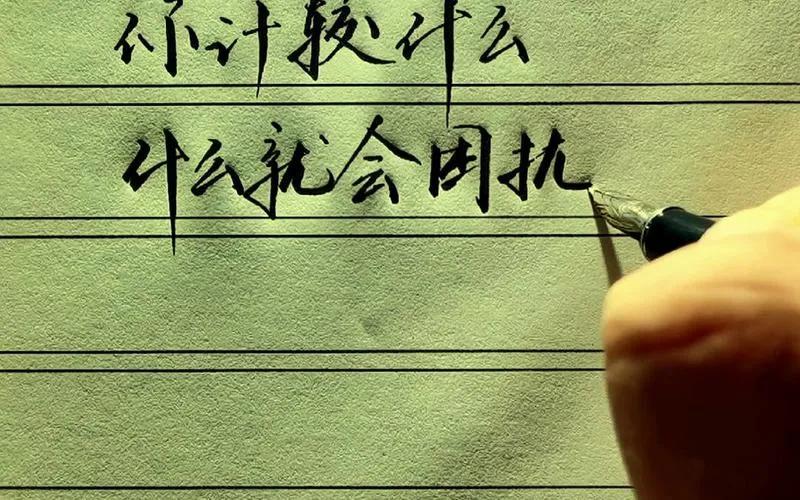 你计较什么
什么就会困扰